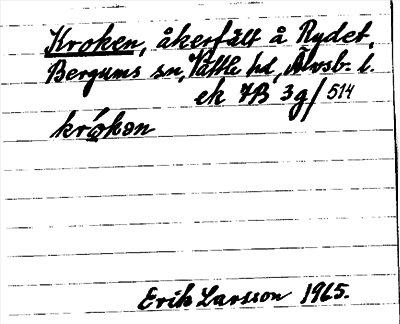 Kroken, åkerfält å Rydet,
Bergums sn, Vättle hd, Älvsb. l.
ek 7B 3g/514
krókən
Erik Larsson 1965.